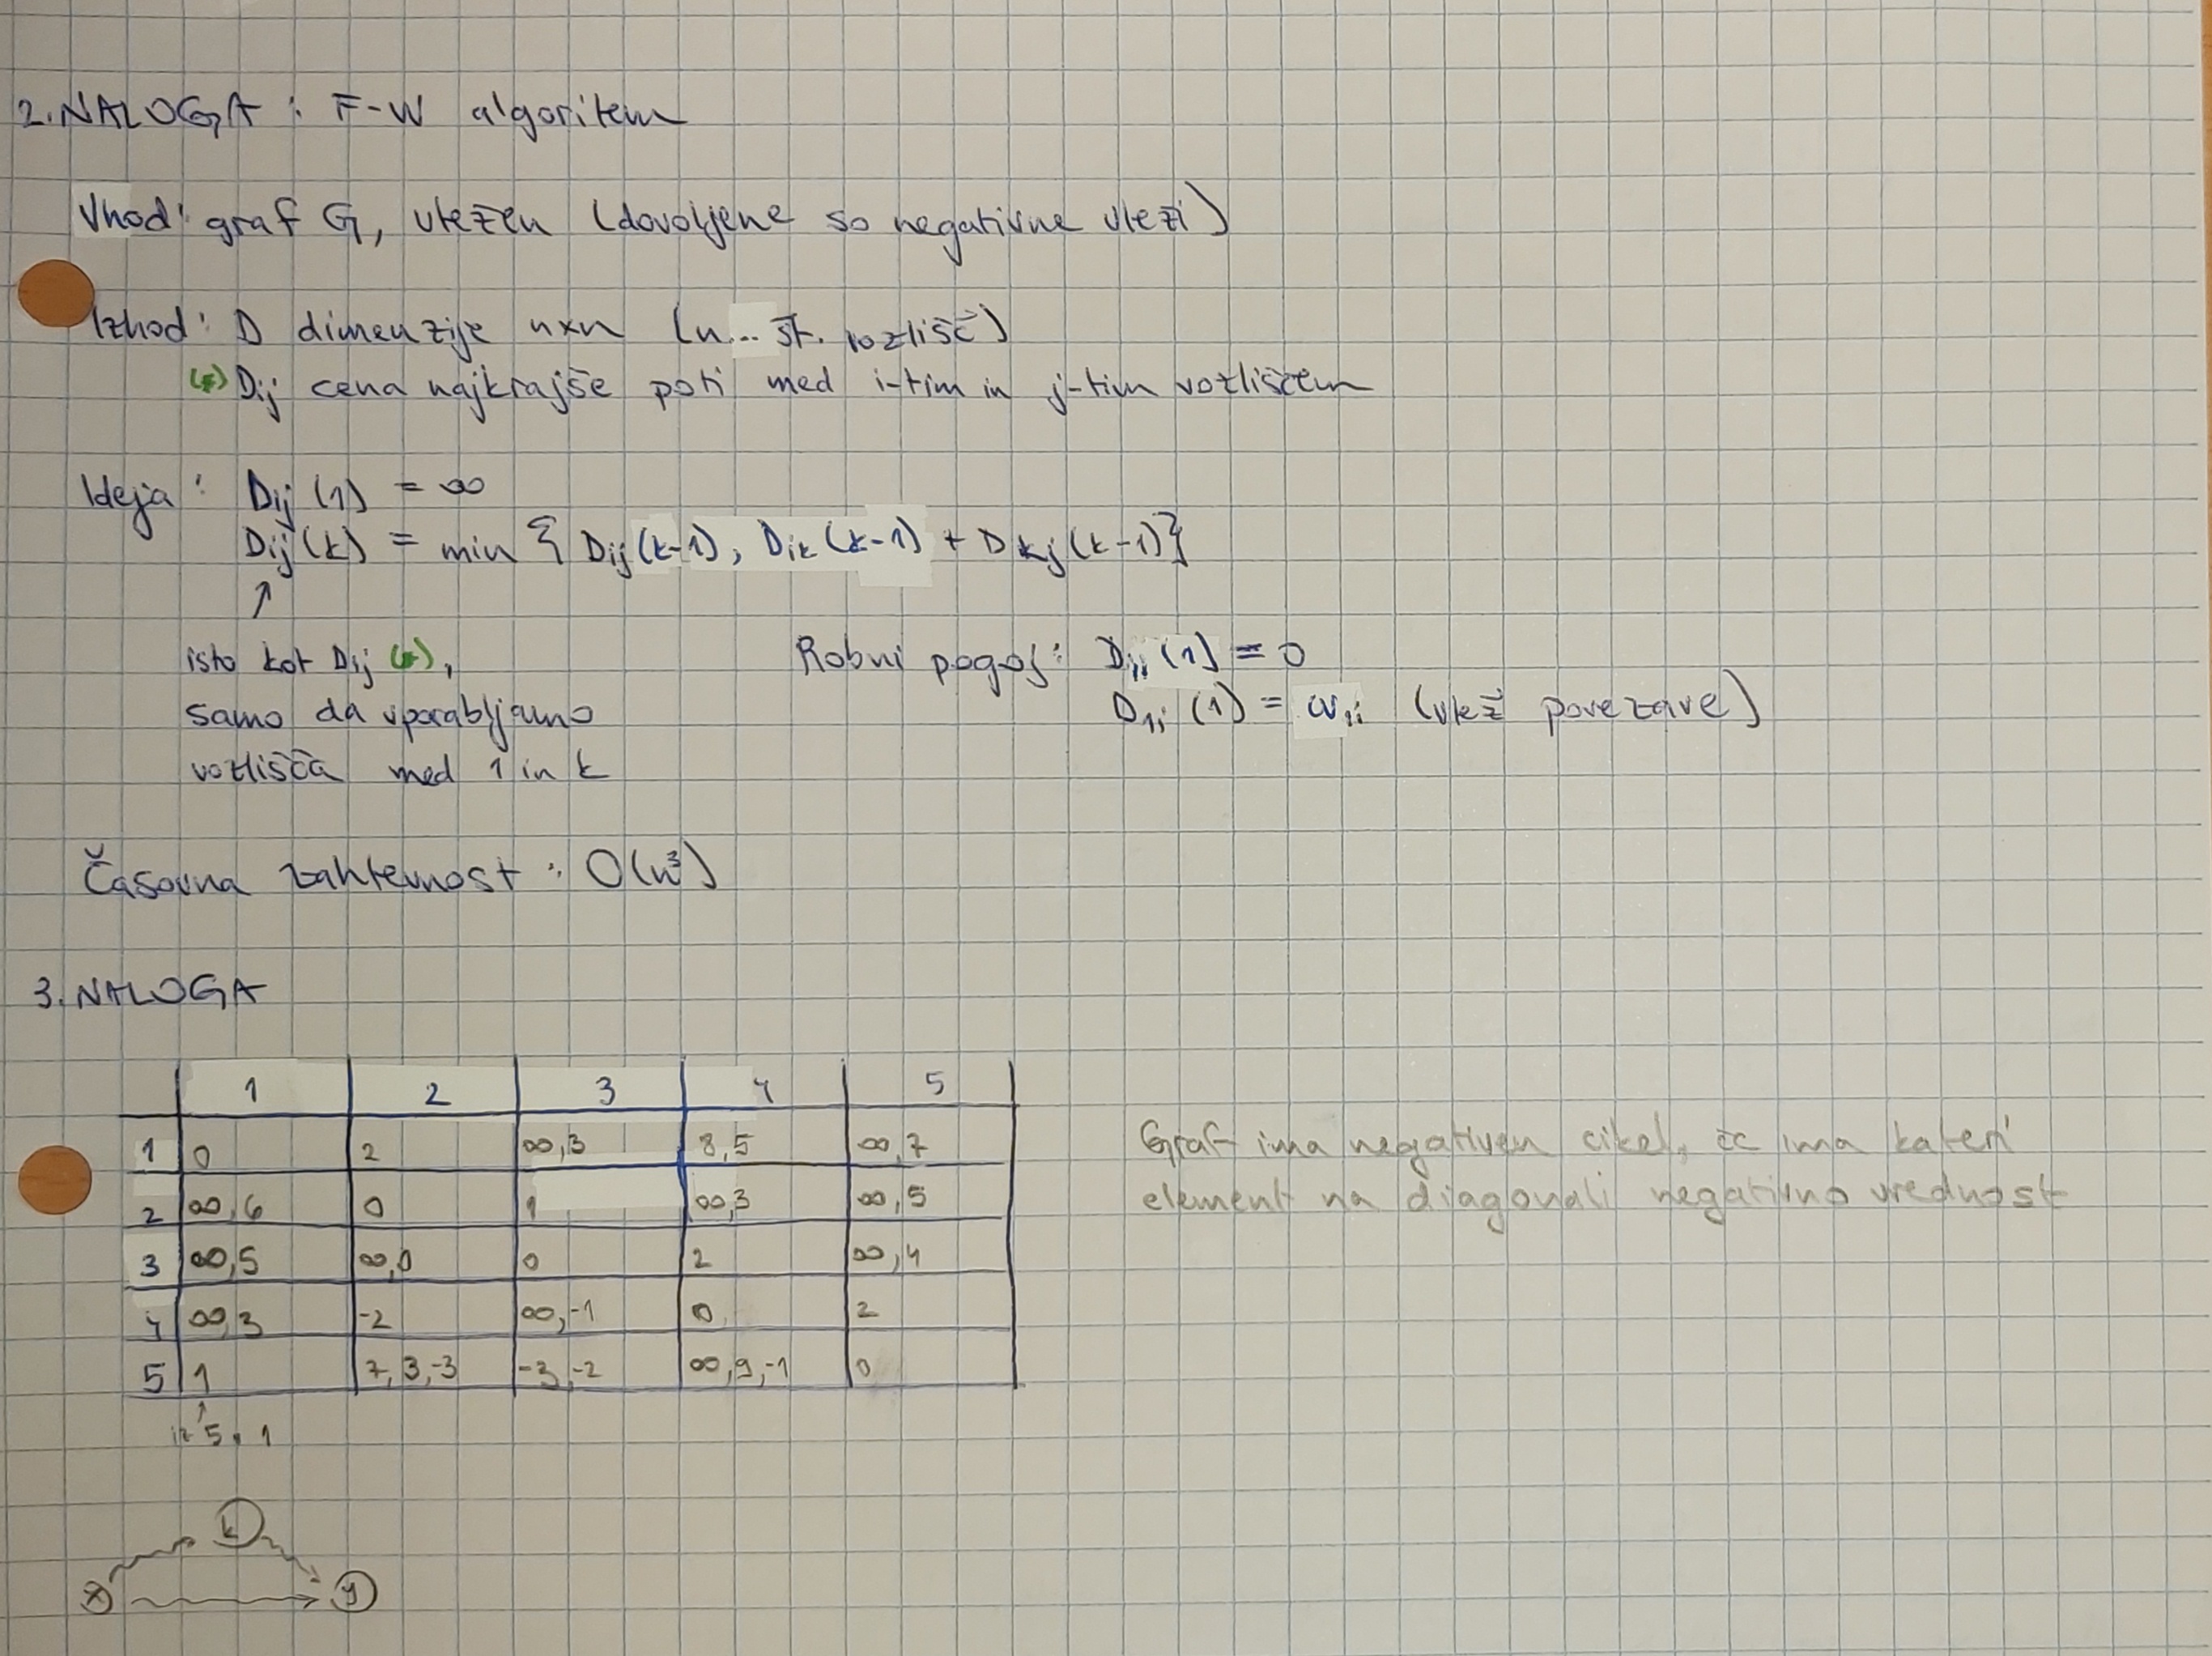 2. NALOGA : F-W algoritem
Vhod: graf G, utežen (dovoljene so negativne uteži)
Izhod: D dimenzije n×n (n... št. vozlišč)
(*) Dij cena najkrajše poti med i-tim in j-tim vozliščem
Ideja: Dij (1) = ∞
Dij (k) = min { Dij (k-1), Dik (k-1) + Dkj (k-1)}
↑
isto kot Dij (*),
samo da uporabljamo
vozlišča med 1 in k
Robni pogoj: Dii (1) = 0
D1i (1) = w1i (utež povezave)
Časovna zahtevnost : O(n³)
3. NALOGA
1 2 3 4 5
1 0 2 ∞,3 8,5 ∞,7
2 ∞,6 0 1 ∞,3 ∞,5
3 ∞,5 ∞,0 0 2 ∞,4
4 ∞,3 -2 ∞,-1 0 2
5 1 7,3,-3 -3,-2 ∞,9,-1 0
↑
iz 5 v 1
Graf ima negativen cikel, če ima kateri
element na diagonali negativno vrednost
x k y